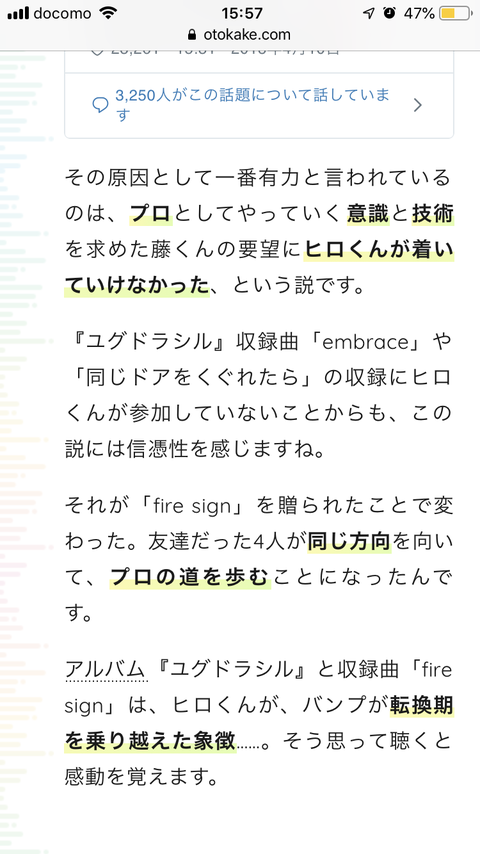 docomo 15:57 47%
otokake.com
3,250人がこの話題について話していま
す
その原因として一番有力と言われている
のは、プロとしてやっていく意識と技術
を求めた藤くんの要望にヒロくんが着い
ていけなかった、という説です。
『ユグドラシル』収録曲「embrace」や
「同じドアをくぐれたら」の収録にヒロ
くんが参加していないことからも、この
説には信憑性を感じますね。
それが「fire sign」を贈られたことで変
わった。友達だった4人が同じ方向を向い
て、プロの道を歩むことになったんで
す。
アルバム『ユグドラシル』と収録曲「fire
sign」は、ヒロくんが、バンプが転換期
を乗り越えた象徴……。そう思って聴くと
感動を覚えます。